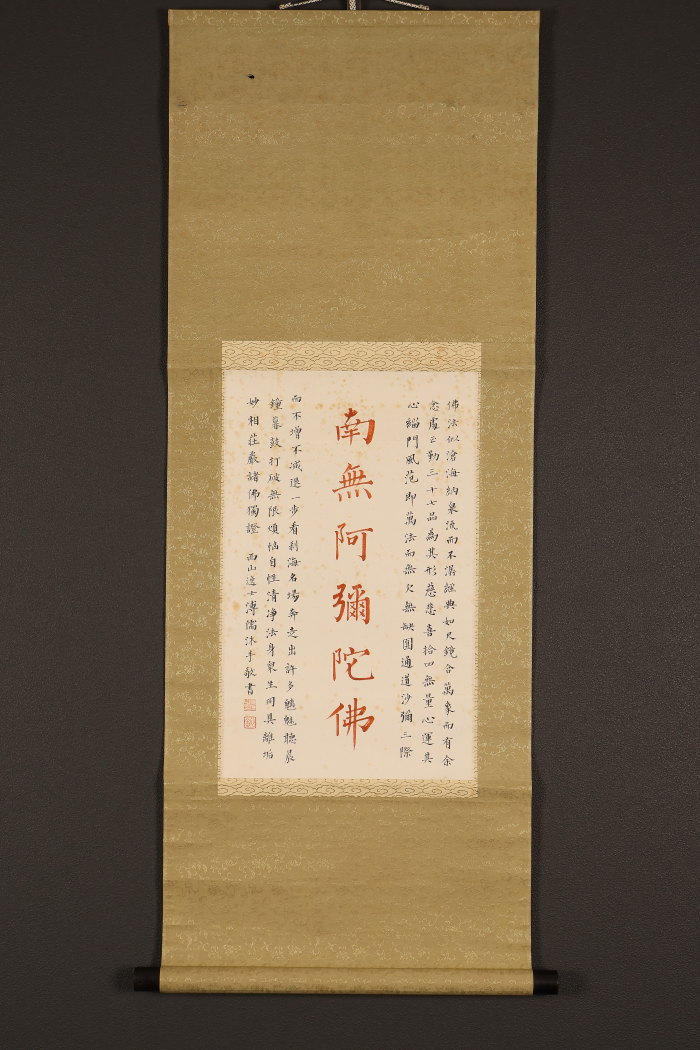 佛法似滄海納衆流而不溢經典如尺鏡含萬象而有余
念處正勤三十七品為其形慈悲喜捨四無量心運其
心緇門風范即萬法而無欠無缺圓通道沙彌三際
南無阿彌陀佛
而不增不減退一步看利海名場奔走出許多魑魅聽晨
鐘暮鼓打破無限煩惱自性清净法身衆生同具離垢
妙相莊嚴諸佛獨證
西山逸士溥儒沐手敬書